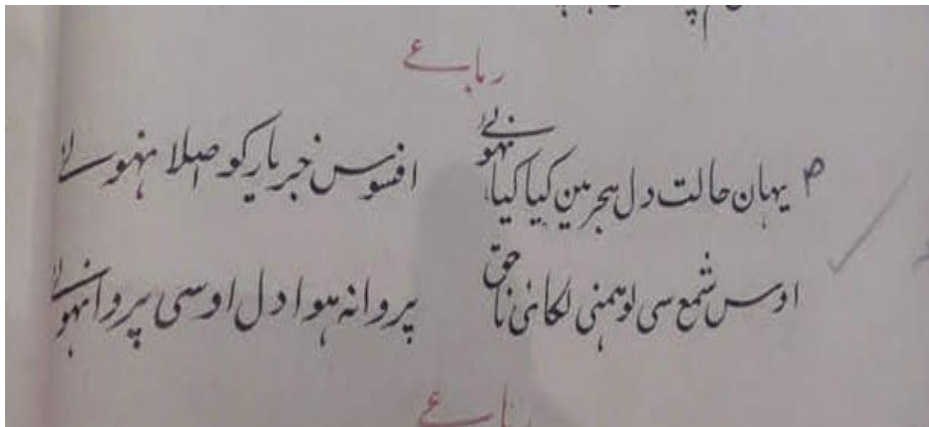 رباعے
یہان حالت دل ہجر مین کیا کیا نہوئے افسوس خبر یار کو اصلا نہوئے
اوس شمع سی لو ہمنی لکائی ناحق پروانہ ہوا دل اوسی پروا نہوئے
رباعے